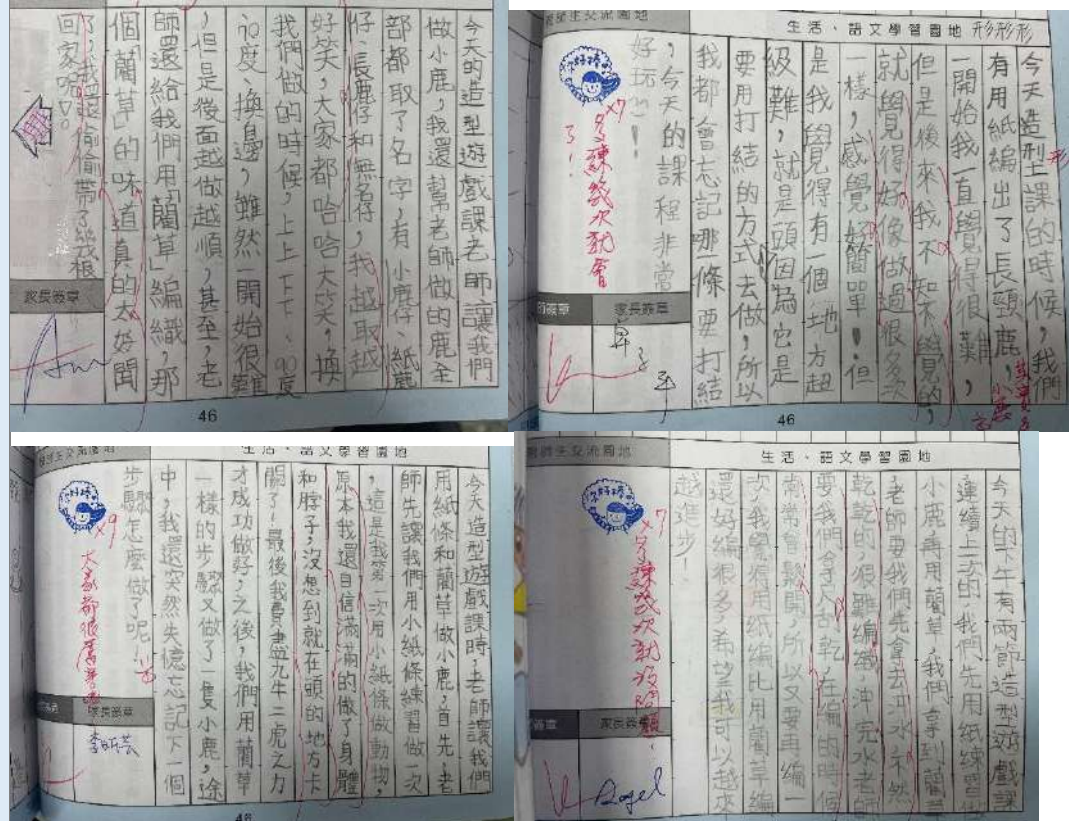 今天的造型遊戲課老師讓我們
做小鹿,我還幫老師做的鹿全
部都取了名字,有小鹿仔、紙鹿
仔、長鹿仔和無名仔,我越取越
好笑,大家都哈哈大笑,換
我們做的時候,上上下下、90度
90度、換邊,雖然一開始很難
,但是後面越做越順,甚至,老
師還給我們用「藺草」編織,那
個「藺草」的味道真的太好聞
了,我還偷偷帶了幾根
回家哈。
家長簽章
Ann
46
師生交流園地
生活、語文學習園地
形形形
今天造型課的時候,我們
有用紙編出了長頸鹿,
一開始我一直覺得很難,
但是後來我不知不覺的,
就覺得好像做過很多次
一樣,感覺好簡單!但
是我覺得有一個地方超
級難,就是頭因為它是
要用打結的方式去做,所以
我都會忘記哪一條要打結
,今天的課程非常
好玩!
形
你好棒
x7
多練幾次就會
了!
家長簽章
46
師生交流園地
生活、語文學習園地
今天造型遊戲課時,老師讓我們
用紙條和藺草做小鹿,首先,老
師先讓我們用小紙條練習做一次
,這是我第一次用小紙條做動物,
原本我還自信滿滿的做了身體
和脖子,沒想到就在頭的地方卡
關了!最後我費盡九牛二虎之力
才成功做好,之後,我們用藺草
一樣的步驟又做了一隻小鹿,途
中,我還突然失憶忘記下一個
步驟怎麼做了呢!
你好棒
x9
大家都很厲害
家長簽章
46
師生交流園地
生活、語文學習園地
今天的下午有兩節造型遊戲課
連續上次的,我們先用紙練習做
小鹿再用藺草,我們拿到藺草
老師要我們先拿去沖水不然
乾乾的,很難編織,沖完水老師
要我們拿去刮乾,在編的時候
常常會鬆開,所以又要再編一
次,我覺得用紙編比用藺草編
還好編很多,希望我可以越來
越進步!
你好棒
x7
多練幾次就沒問題!
家長簽章